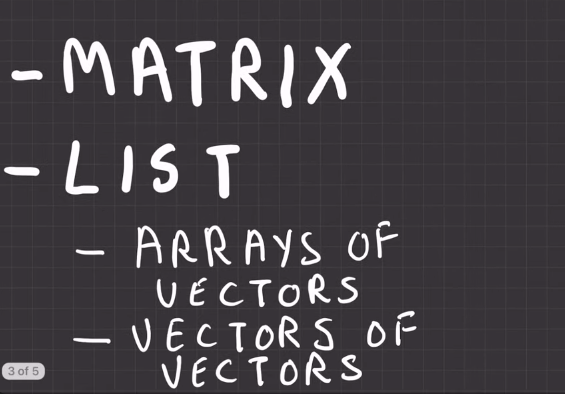 - MATRIX
- LIST
- ARRAYS OF
VECTORS
- VECTORS OF
VECTORS
3 of 5